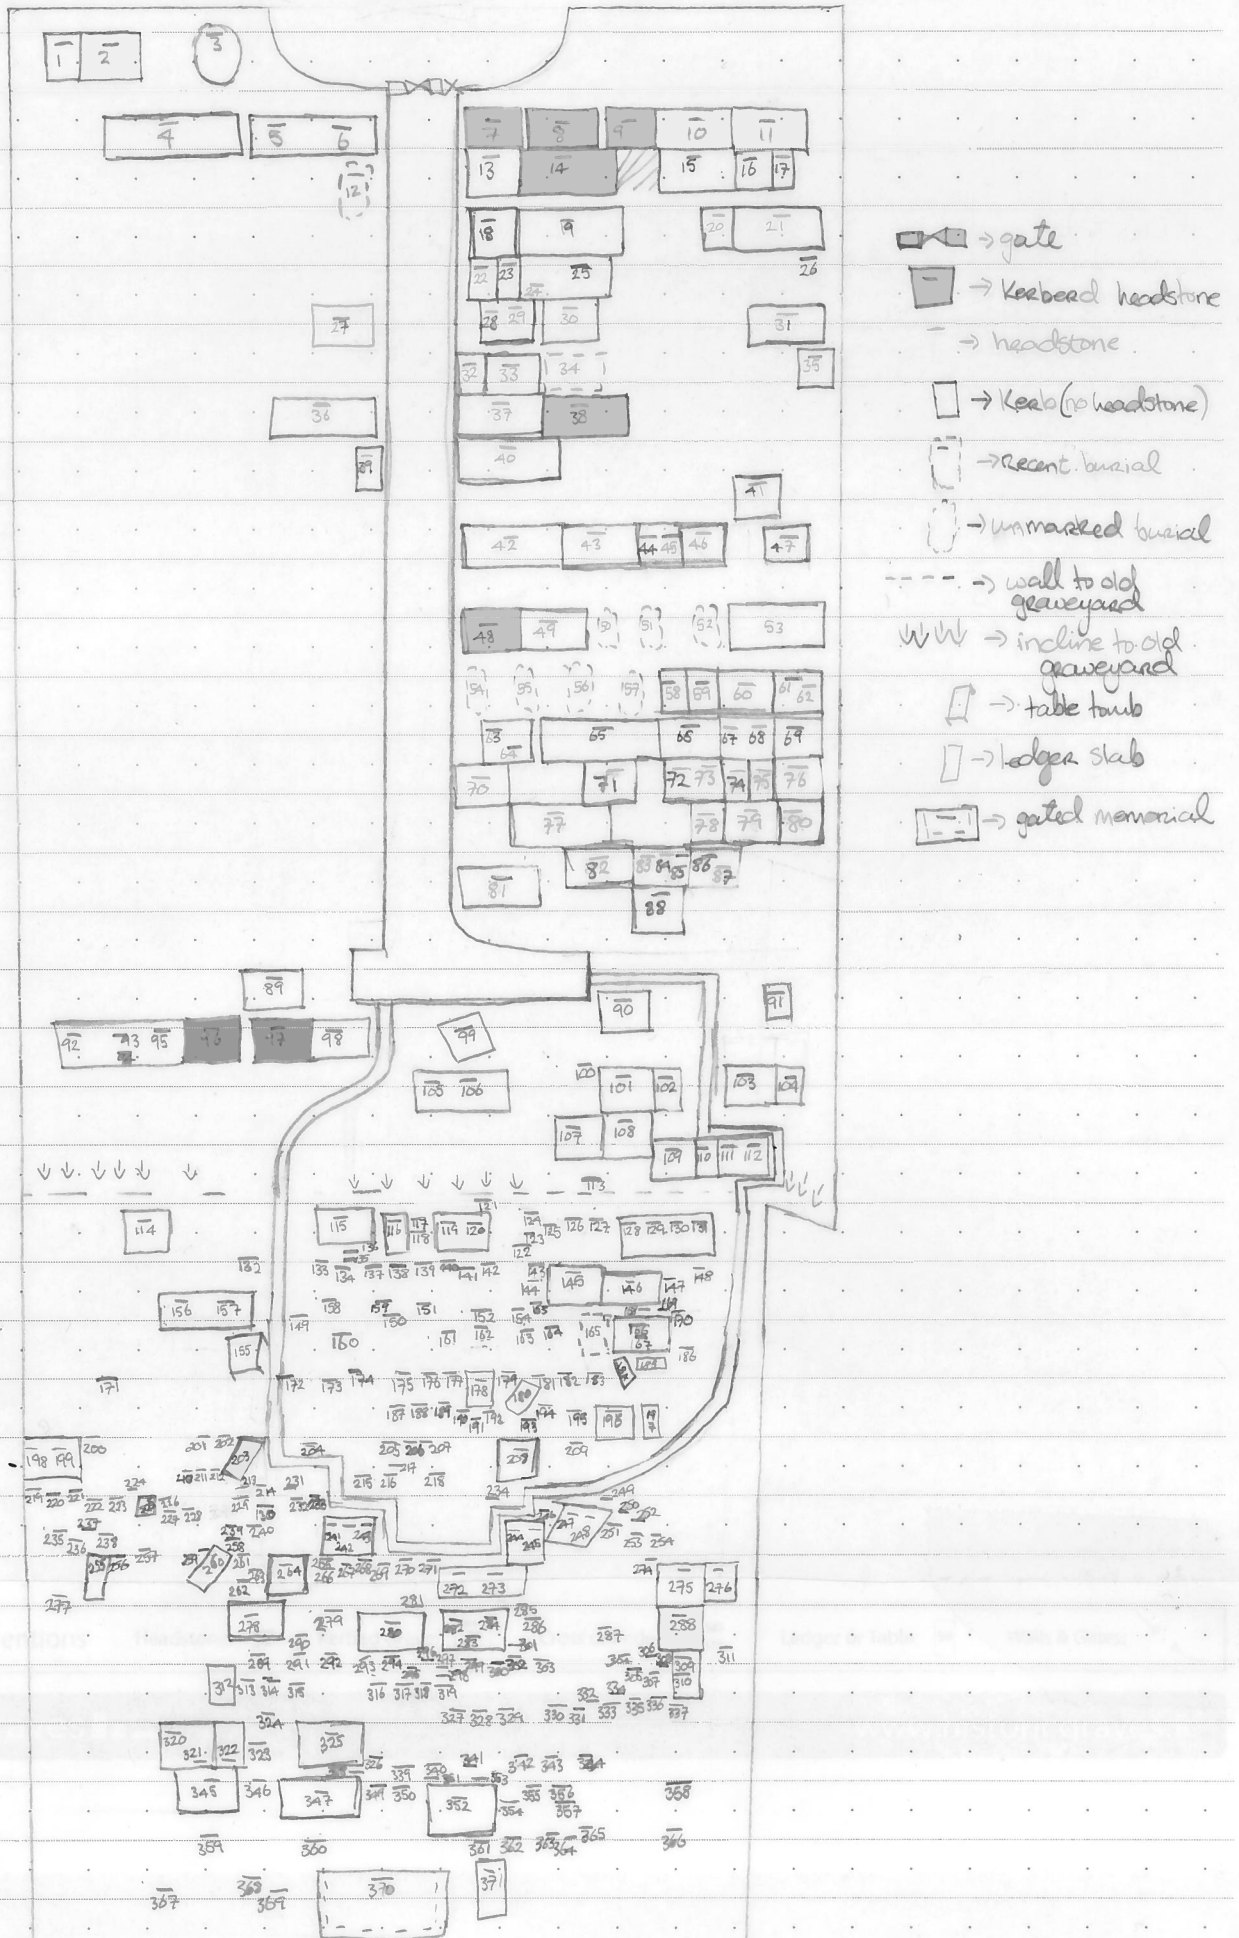 1 2 3
4 5 6 7 8 9 10 11
12 13 14 15 16 17
18 19 20 21
22 23 24 25 26
27 28 29 30 31
32 33 34 35
36 37 38
39 40
41
42 43 44 45 46 47
48 49 50 51 52 53
54 55 56 57 58 59 60 61 62
63 64 65 66 67 68 69
70 71 72 73 74 75 76
77 78 79 80
81 82 83 84 85 86 87
88
89 90 91
92 93 95 96 97 98 99
100 101 102 103 104
105 106
107 108
109 110 111 112
113
114 115 116 117 118 119 120 121
122 123 124 125 126 127 128 129 130 131
132 133 134 135 136 137 138 139 140 141 142 143 144 145 146 147 148
149 150 151 152
155 156 157 158 159
160 161 162 163 164 165
166 167
170
171 172 173 174 175 176 177 178 179 180 181 182 183
186
187 188 189 190 191 192 193 194 195 196 197
198 199 200 201 202 203 204 205 206 207 208 209
211 212 213 214 215 216 217 218
219 220 221 222 223 224
226 227 228 229 231 232 234
235 236 237 238 239 240 241 242 243 244 245
247 248 249 250 251 252 253 254
255 256 257 258 259 260 261 262 264
266 267 268 269 270 271 272 273 274 275 276
277 278 279 280 281 282 283 284 285 286 287 288
289 290 291 292 293 294
303
309 310 311
312 313 314 315 316 317 318 319
320 321 322 323 324 325 326
327 328 329 330 331 332 333 334 335 336 337
339 340 341 342 343 344
345 346 347 349 350 352 354 355 356 357 358
359 360 361 362 363 364 365 366
367 368 369 370 371
→ gate
→ Kerberd headstone
→ headstone
→ Kerb (no headstone)
→ Recent burial
→ unmarked burial
→ wall to old
graveyard
→ incline to old
graveyard
→ table tomb
→ ledger slab
→ gated memorial